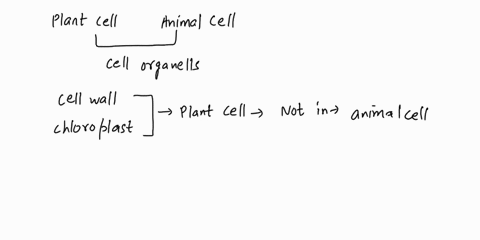 Plant cell Animal Cell
cell organells
cell wall
chloroplast
→ Plant cell → Not in → animal cell